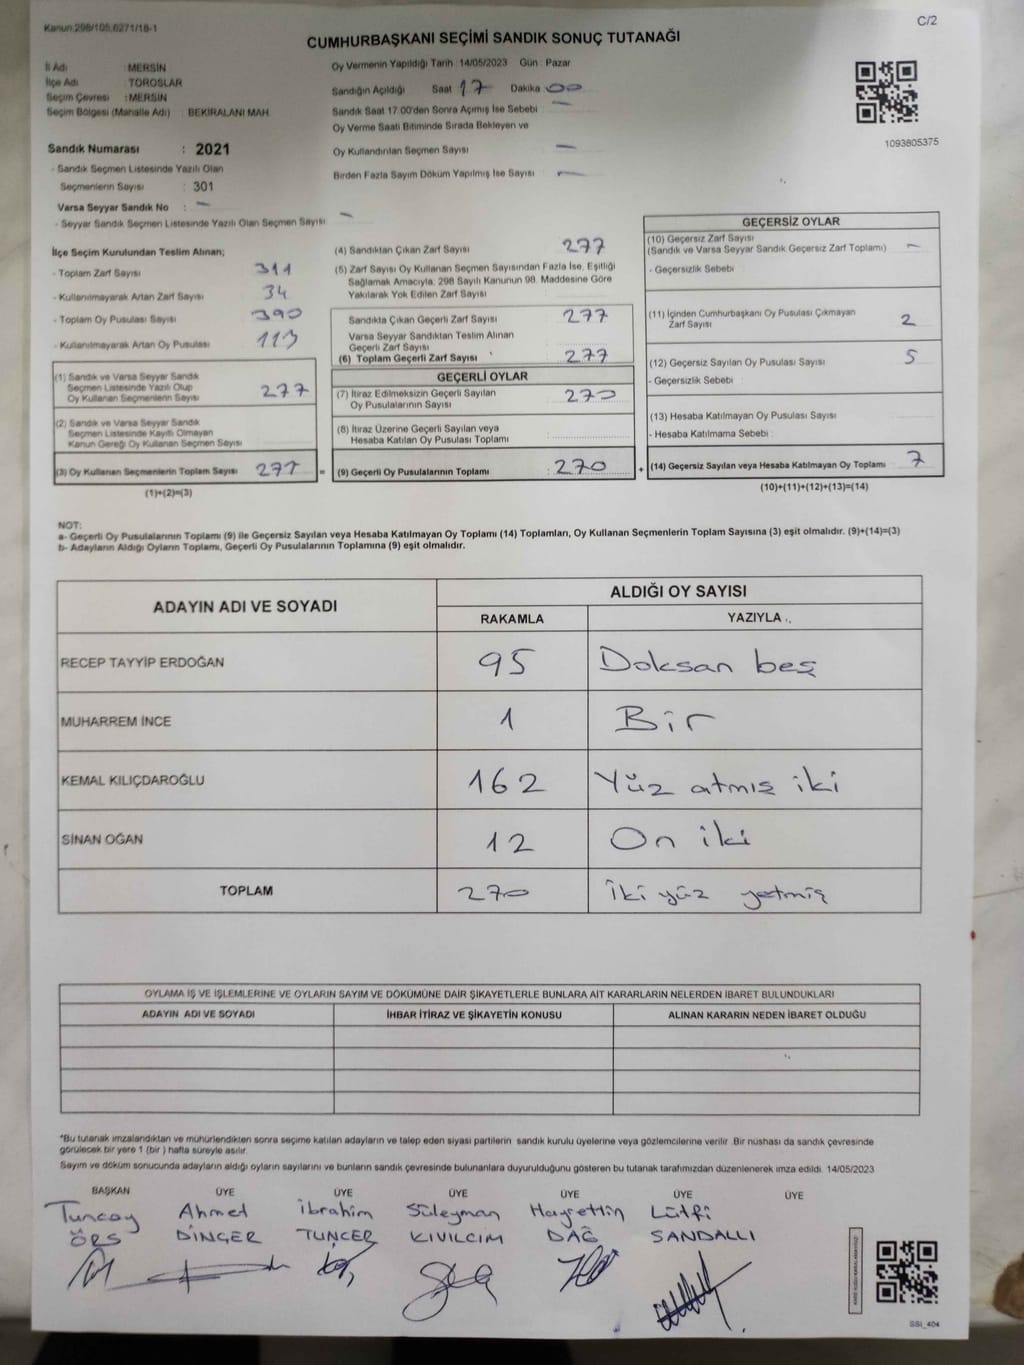 Kanun:298/105,6271/18-1
C/2
CUMHURBAŞKANI SEÇİMİ SANDIK SONUÇ TUTANAĞI
İl Adı : MERSİN
İlçe Adı : TOROSLAR
Seçim Çevresi : MERSİN
Seçim Bölgesi (Mahalle Adı) : BEKİRALANI MAH
Sandık Numarası : 2021
- Sandık Seçmen Listesinde Yazılı Olan
Seçmenlerin Sayısı : 301
Varsa Seyyar Sandık No : -
- Seyyar Sandık Seçmen Listesinde Yazılı Olan Seçmen Sayısı -
Oy Vermenin Yapıldığı Tarih : 14/05/2023 Gün : Pazar
Sandığın Açıldığı Saat 17 Dakika 00
Sandık Saat 17.00'den Sonra Açımış İse Sebebi -
Oy Verme Saati Bitiminde Sırada Bekleyen ve
Oy Kullandırılan Seçmen Sayısı -
Birden Fazla Sayım Döküm Yapılmış İse Sayısı -
1093805375
İlçe Seçim Kurulundan Teslim Alınan;
- Toplam Zarf Sayısı 311
- Kullanılmayarak Artan Zarf Sayısı 34
- Toplam Oy Pusulası Sayısı 390
- Kullanılmayarak Artan Oy Pusulası 113
(1) Sandık ve Varsa Seyyar Sandık
Seçmen Listesinde Yazılı Olup
Oy Kullanan Seçmenlerin Sayısı 277
(2) Sandık ve Varsa Seyyar Sandık
Seçmen Listesinde Kayıtlı Olmayan
Kanun Gereği Oy Kullanan Seçmen Sayısı
(3) Oy Kullanan Seçmenlerin Toplam Sayısı 277 =
(1)+(2)=(3)
(4) Sandıktan Çıkan Zarf Sayısı 277
(5) Zarf Sayısı Oy Kullanan Seçmen Sayısından Fazla İse, Eşitliği
Sağlamak Amacıyla; 298 Sayılı Kanunun 98. Maddesine Göre
Yakılarak Yok Edilen Zarf Sayısı
Sandıkta Çıkan Geçerli Zarf Sayısı 277
Varsa Seyyar Sandıktan Teslim Alınan
Geçerli Zarf Sayısı
(6) Toplam Geçerli Zarf Sayısı 277
GEÇERLİ OYLAR
(7) İtiraz Edilmeksizin Geçerli Sayılan
Oy Pusulalarının Sayısı 270
(8) İtiraz Üzerine Geçerli Sayılan veya
Hesaba Katılan Oy Pusulası Toplamı
(9) Geçerli Oy Pusulalarının Toplamı : 270 +
GEÇERSİZ OYLAR
(10) Geçersiz Zarf Sayısı
(Sandık ve Varsa Seyyar Sandık Geçersiz Zarf Toplamı) -
- Geçersizlik Sebebi
(11) İçinden Cumhurbaşkanı Oy Pusulası Çıkmayan
Zarf Sayısı 2
(12) Geçersiz Sayılan Oy Pusulası Sayısı 5
- Geçersizlik Sebebi :
(13) Hesaba Katılmayan Oy Pusulası Sayısı
- Hesaba Katılmama Sebebi
(14) Geçersiz Sayılan veya Hesaba Katılmayan Oy Toplamı 7
(10)+(11)+(12)+(13)=(14)
NOT:
a- Geçerli Oy Pusulalarının Toplamı (9) ile Geçersiz Sayılan veya Hesaba Katılmayan Oy Toplamı (14) Toplamları, Oy Kullanan Seçmenlerin Toplam Sayısına (3) eşit olmalıdır. (9)+(14)=(3)
b- Adayların Aldığı Oyların Toplamı, Geçerli Oy Pusulalarının Toplamına (9) eşit olmalıdır.
ADAYIN ADI VE SOYADI ALDIĞI OY SAYISI
RAKAMLA YAZIYLA
RECEP TAYYİP ERDOĞAN 95 Doksan beş
MUHARREM İNCE 1 Bir
KEMAL KILIÇDAROĞLU 162 Yüz atmış iki
SİNAN OĞAN 12 On iki
TOPLAM 270 İki yüz yetmiş
OYLAMA İŞ VE İŞLEMLERİNE VE OYLARIN SAYIM VE DÖKÜMÜNE DAİR ŞİKAYETLERLE BUNLARA AİT KARARLARIN NELERDEN İBARET BULUNDUKLARI
ADAYIN ADI VE SOYADI İHBAR İTİRAZ VE ŞİKAYETİN KONUSU ALINAN KARARIN NEDEN İBARET OLDUĞU
*Bu tutanak imzalandıktan ve mühürlendikten sonra seçime katılan adayların ve talep eden siyasi partilerin sandık kurulu üyelerine veya gözlemcilerine verilir. Bir nüshası da sandık çevresinde
görülecek bir yere 1 (bir) hafta süreyle asılır.
Sayım ve döküm sonucunda adayların aldığı oyların sayılarını ve bunların sandık çevresinde bulunanlara duyurulduğunu gösteren bu tutanak tarafımızdan düzenlenerek imza edildi. 14/05/2023
BAŞKAN ÜYE ÜYE ÜYE ÜYE ÜYE ÜYE
Tuncay Ahmet İbrahim Süleyman Hayrettin Lütfi
ÖRS DİNÇER TUNÇER KIVILCIM DAĞ SANDALLI
SSI_404